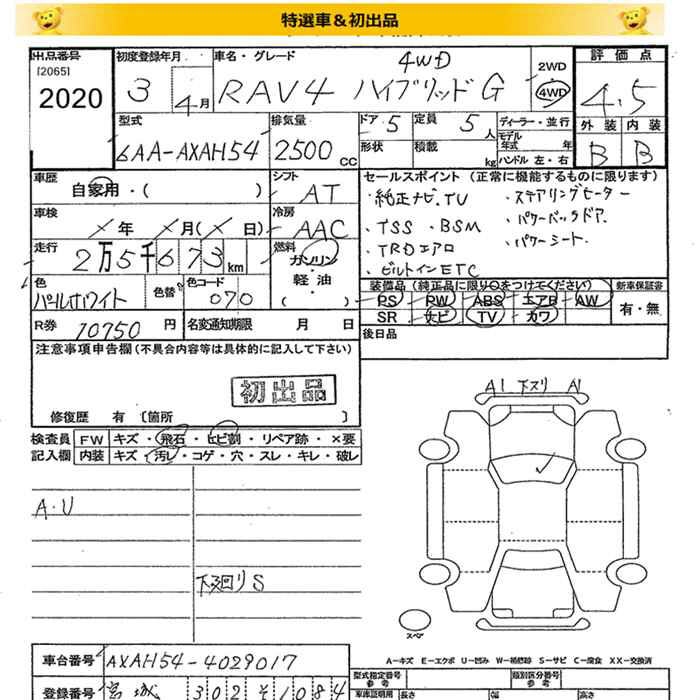 特選車＆初出品
出品番号 初度登録年月 車名・グレード 4WD 2WD 評価点
[2065]
2020 3 4月 RAV4 ハイブリッドG 4WD 4.5
型式 排気量 ドア 5 定員 5人 ディーラー・並行 外装 内装
6AA-AXAH54 2500cc 形状 積載 kg モデル年式 年 ハンドル 左・右 B B
車歴 自家用・( ) シフト AT セールスポイント (正常に機能するものに限ります)
・純正ナビ.TV ・ステアリングヒーター
車検 ×年 ×月(×日) 冷房 AAC
・TSS ・BSM ・パワーバックドア.
走行 2万5千673km 燃料 ガソリン・軽油・( )
・TRDエアロ ・パワーシート.
・ビルトインETC
色 パールホワイト 色替 色コード 070
装備品 (純正品に限り○をつけてください) 新車保証書
PS PW ABS エアB AW 有・無
SR ナビ TV カワ
R券 10750円 名変通知期限 月 日
後日品
注意事項申告欄(不具合内容等は具体的に記入して下さい)
初出品
修復歴 有 〔箇所 〕
A1 下スリ A1
検査員 FW キズ・飛石・ヒビ割・リペア跡・×要
記入欄 内装 キズ・汚レ・コゲ・穴・スレ・キレ・破レ
A・U
下廻りS
スペア
A−キズ E−エクボ U−凹み W−補修跡 S−サビ C−腐食 XX−交換済
車台番号 AXAH54-4029017
型式指定番号 参考 類別区分番号 参考
登録番号 宮城 302 そ 1084
車庫証明用 参考 長さ 幅 高さ